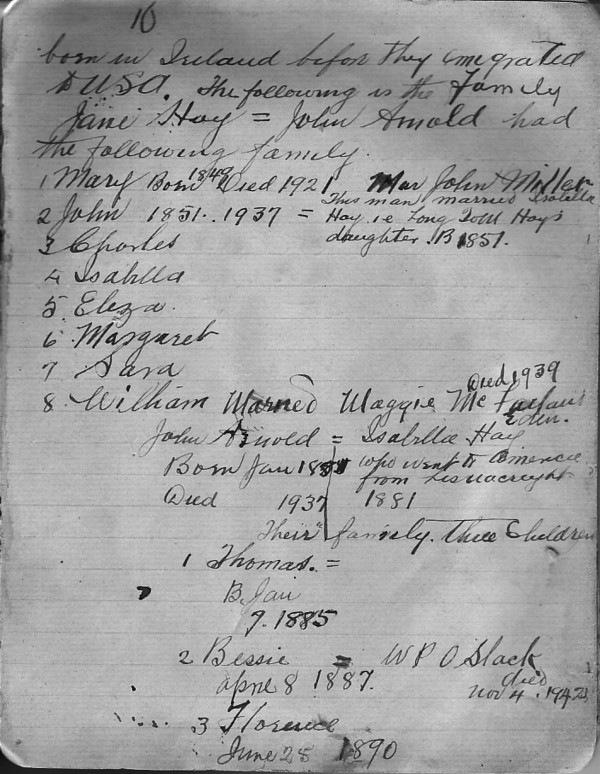 10
born in Ireland before they emigrated
to USA. The following is the Family
Jane Hay = John Arnold had
the following family.
1 Mary Born 1849 Died 1921 Mar John Miller
2 John 1851..1937 = This man married Isabella
Hay i.e Long Tom Hay's
daughter. B 1851.
3 Charles
4 Isabella
5 Eliza.
6 Margaret
7 Sara
8 William Married Maggie Mc Died 1939
Edin.
John Arnold = Isabella Hay
Born Jan who went to America
from Lisnacreight
Died 1937 1881
Their family. three Children
1 Thomas. =
B. Jan
9. 1885
2 Bessie = W P O Slack
April 8 1887. died
Nov 4. 
3 Florence
June 25 1890